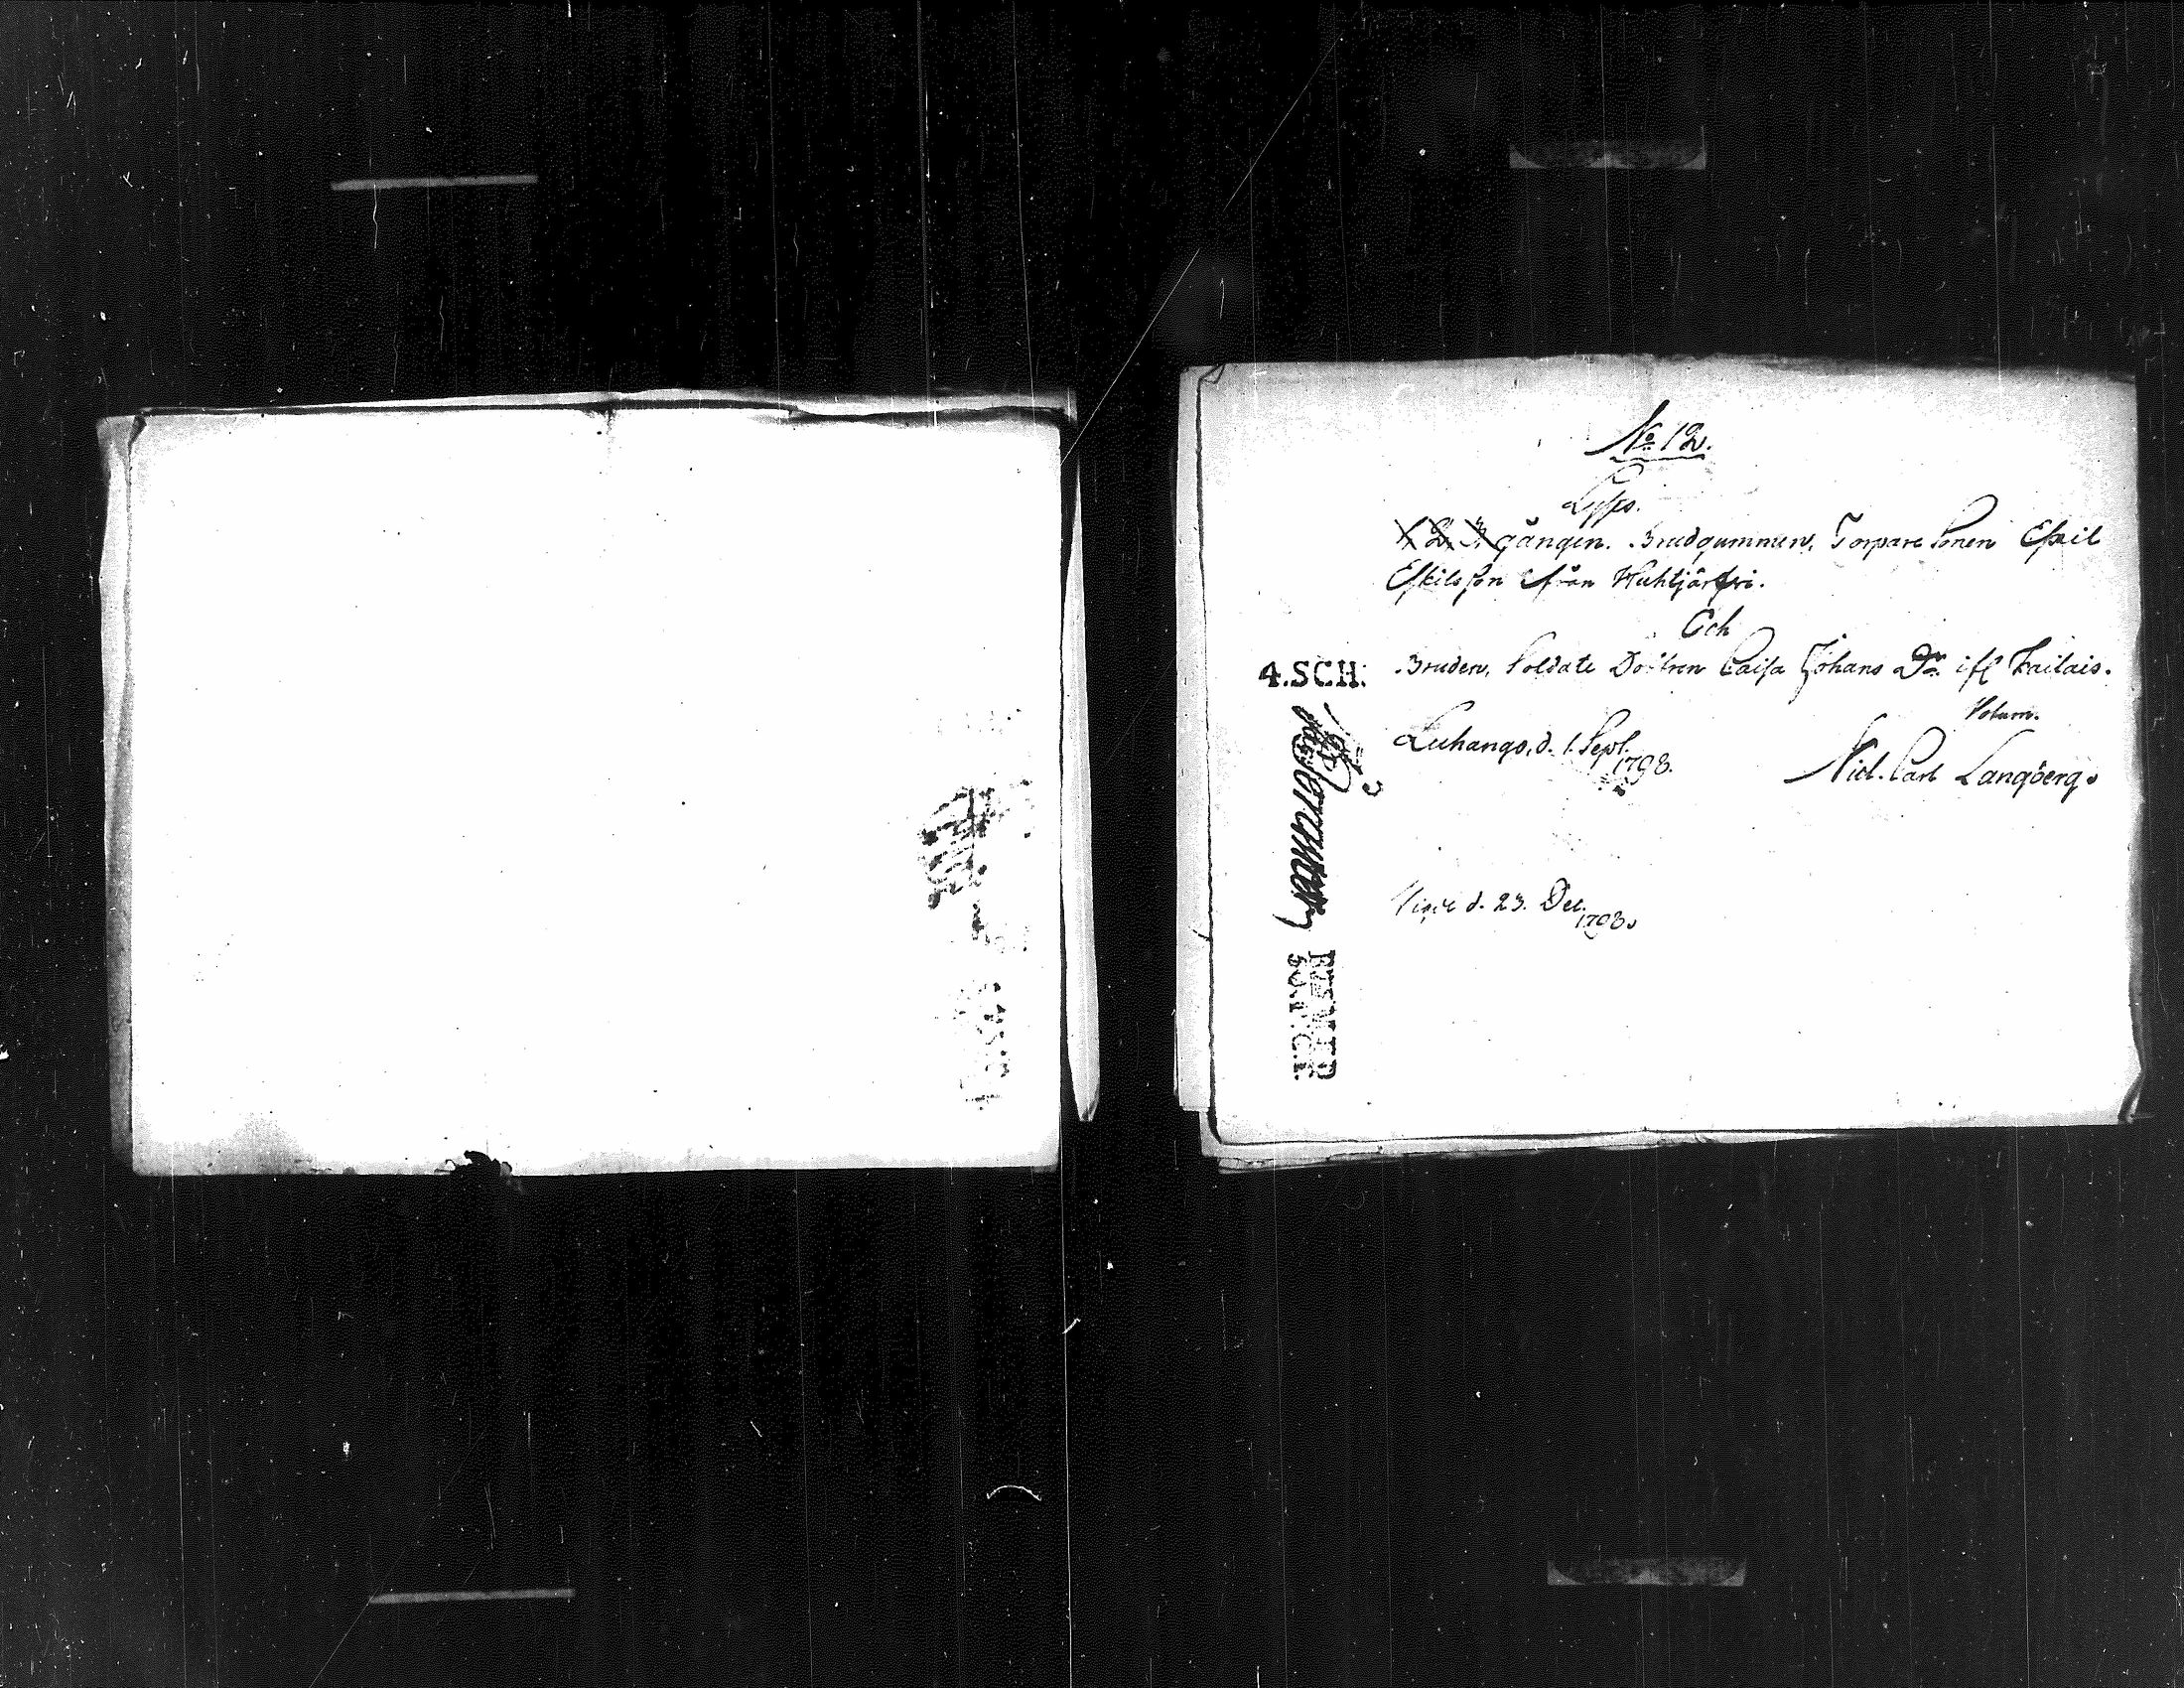 No 12.
Lyses.
1. 2. 3. gången. Brudgummen, Torpare Sonen Eskil
Eskilsson ifrån Huhtjärfvi.
Och
Bruden, Soldate Dottren Caisa Johans Dr. ifr
4.SCH:
Luhango, d. 1. Sept. 1798.
Nicl. Carl Langberg.
Vigde d. 23. Dec. 1798.